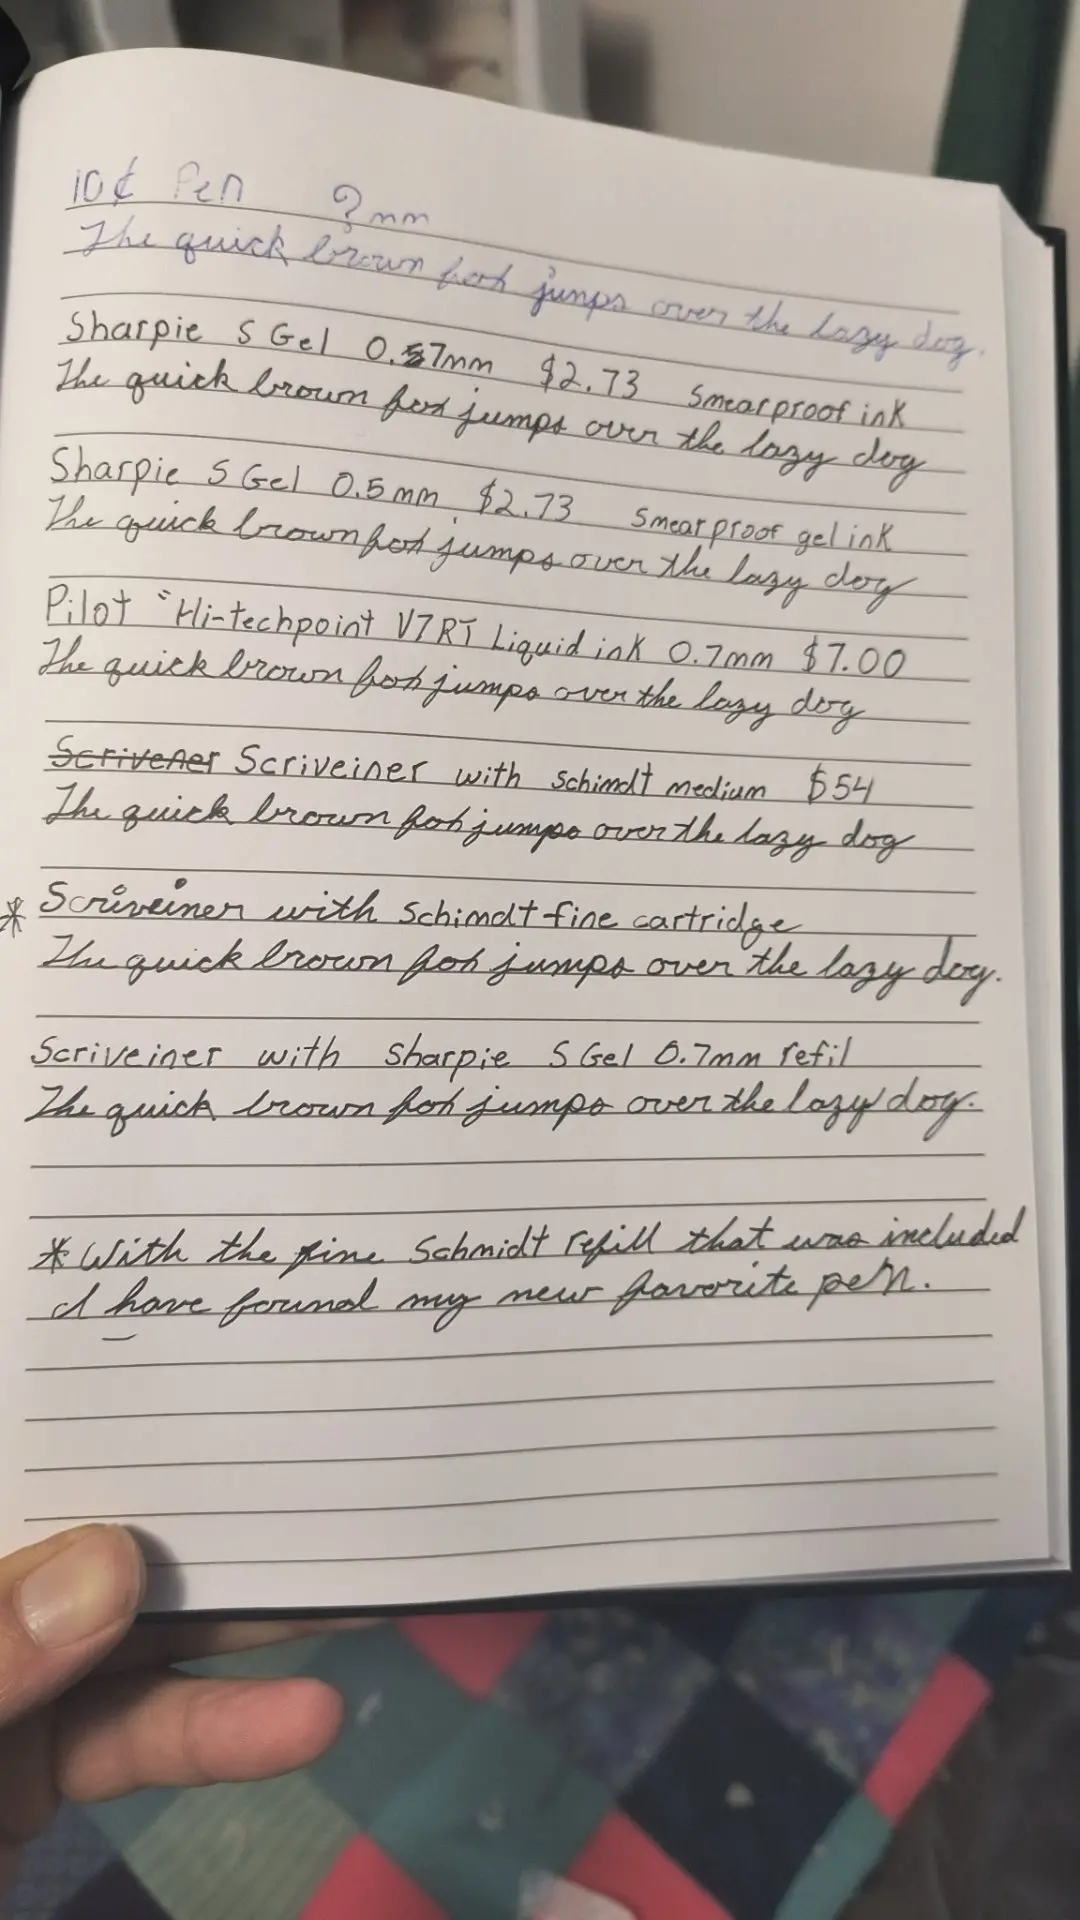 10¢ Pen ? mm
The quick brown fox jumps over the lazy dog.
Sharpie S Gel 0.57mm $2.73 Smearproof ink
The quick brown fox jumps over the lazy dog
Sharpie S Gel 0.5mm $2.73 Smearproof gel ink
The quick brown fox jumps over the lazy dog
Pilot "Hi-techpoint V7RT Liquid ink 0.7mm $7.00
The quick brown fox jumps over the lazy dog
Scrivener Scriveiner with schimdt medium $54
The quick brown fox jumps over the lazy dog
* Scriveiner with Schimdt fine cartridge
The quick brown fox jumps over the lazy dog.
Scriveiner with Sharpie S Gel 0.7mm refil
The quick brown fox jumps over the lazy dog.
* With the fine Schmidt refill that was included
I have found my new favorite pen.